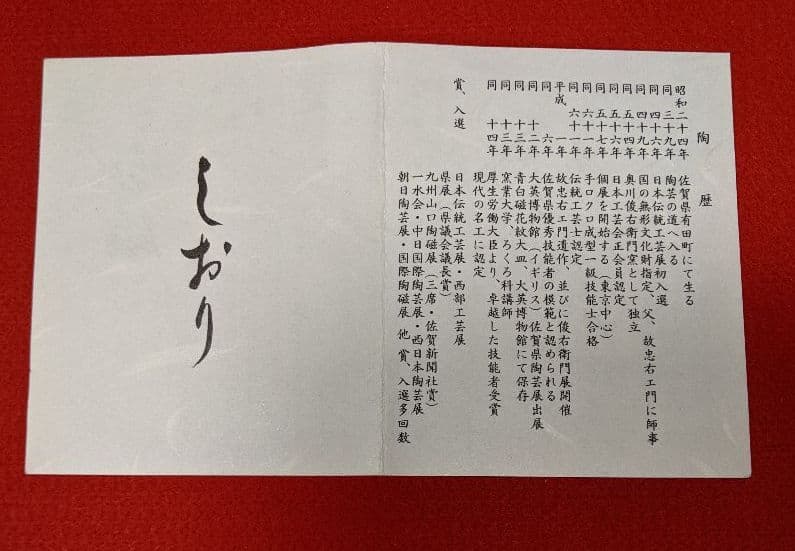 陶歴
昭和二十四年 佐賀県有田町にて生る
同 三十九年 陶芸の道へ入る
同 四十六年 日本伝統工芸展初入選
同 四十九年 国の無形文化財指定、父、故忠右エ門に師事
同 五十四年 奥川俊右衛門窯として独立
同 五十六年 日本工芸会正会員認定
同 五十七年 個展を開始する(東京中心)
同 六十一年 手ロクロ成型一級技能士合格
同 伝統工芸士認定
平成 一年 故忠右エ門遺作、並びに俊右衛門展開催
同 六年 佐賀県優秀技能者の模範と認められる
同 十二年 大英博物館(イギリス)佐賀県陶芸展出展
同 十三年 青白磁花紋大皿、大英博物館にて保存
同 十三年 窯業大学、ろくろ科講師
同 十四年 厚生労働大臣より、卓越した技能者受賞
現代の名工に認定
賞、入選 日本伝統工芸展・西部工芸展
県展(県議会議長賞)
九州山口陶磁展(三席・佐賀新聞社賞)
一水会・中日国際陶芸展・西日本陶芸展
朝日陶芸展・国際陶磁展 他 賞、入選多回数
しおり